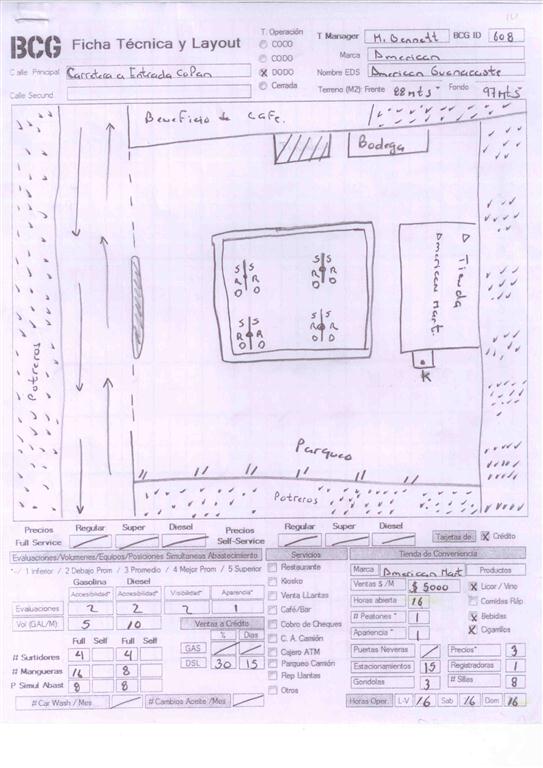 BCG Ficha Técnica y Layout
T. Operación
COCO
CODO
DODO
Cerrada
T Manager M. Bennett BCG ID 608
Marca American
Nombre EDS American Guanacaste
Terreno (M2): Frente 88 mts Fondo 97 mts
Calle Principal Carretera a Entrada Copan
Calle Secund.
Beneficio de Cafe.
Bodega
Tienda
American Mart.
S S S S
R R R R
D D D D
S S S S
R R R R
D D D D
K
Potreros
Parqueo
Potreros
Precios Regular Super Diesel Precios Regular Super Diesel
Full Service Self-Service
Tarjetas de X Crédito
Evaluaciones/Volumenes/Equipos/Posiciones Simultaneas Abastecimiento
1 Inferior / 2 Debajo Prom / 3 Promedio / 4 Mejor Prom / 5 Superior
Gasolina Diesel
Accesibilidad* Accesibilidad* Visibilidad* Aparencia*
Evaluaciones 2 2 2 1
Vol (GAL/M) 5 10
Ventas a Crédito
% Dias
GAS
DSL 30 15
Full Self Full Self
# Surtidores 4 4
# Mangueras 16 8
P Simul Abast 8 8
# Car Wash / Mes
# Cambios Aceite /Mes
Servicios
Restaurante
Kiosko
Venta LLantas
Café/Bar
Cobro de Cheques
C. A. Camión
Cajero ATM
Parqueo Camión
Rep Llantas
Otros
Tienda de Conveniencia
Marca American Mart
Ventas $ /M $ 5000
Horas abierta 16
# Peatones * 1
Apariencia * 1
Productos
X Licor / Vino
Comidas Ráp
X Bebidas
X Cigarrillos
Puertas Neveras
Precios* 3
Estacionamientos 15
Registradoras 1
Gondolas 3
# Sillas 8
Horas Oper. L-V 16 Sab 16 Dom 16